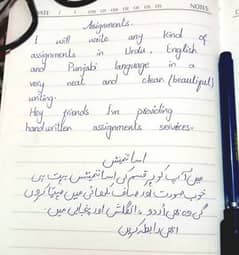 DATE / / NOTES
Assignments.
I will write any kind of
assignments in Urdu, English
and Punjabi language in a
very neat and clean (beautiful)
writing.
Hey friends I'm providing
handwritten assignments services.
اسائنمنٹس
میں آپ کو ہر قسم کی اسائنمنٹس بہت ہی
خوب صورت اور صاف لکھائی میں مہیا کروں
گی وہ بھی اردو، انگلش اور پنجابی میں۔
ابھی رابطہ کریں